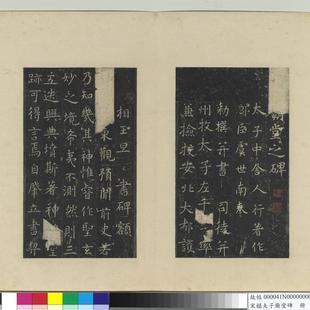 堂之碑
太子中舍人行著作
郎臣虞世南奉
勅撰并書 司徒并
州牧太子左千 率
兼檢校安北大都護
相王旦 書碑額
東觀預聞前史若
乃知幾其神惟睿作聖玄
妙之境希夷不測然則三
五迭興典墳斯著神 聖
跡可得言焉自肇立書契
故帖 000041N00000000
宋搨夫子廟堂碑 冊